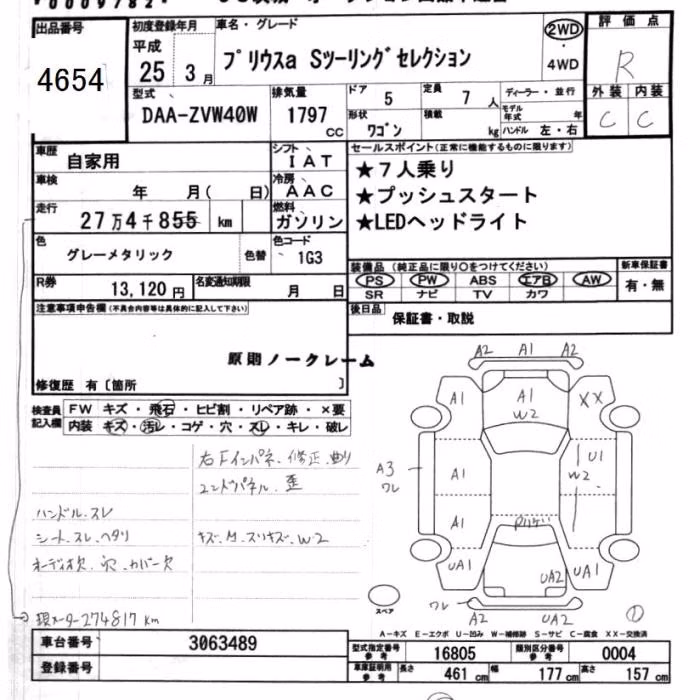 出品番号 初度登録年月 車名・グレード 評価点
4654 平成 25 3月 プリウスa Sツーリングセレクション 2WD・4WD R
型式 排気量 ドア 定員 ディーラー・並行 外装 内装
DAA-ZVW40W 1797 cc 5 7人 モデル年式 年 C C
形状 ワゴン 積載 kg ハンドル 左・右
車歴 自家用 シフト IAT セールスポイント(正常に機能するものに限ります)
車検 年 月( 日) 冷房 AAC ★7人乗り
走行 27万4千855 km 燃料 ガソリン ★プッシュスタート
★LEDヘッドライト
色 グレーメタリック 色替 色コード 1G3
装備品(純正品に限り○をつけてください) 新車保証書
PS PW ABS エアB AW 有・無
SR ナビ TV カワ
R券 13,120円 名変通知期限 月 日
注意事項申告欄(不具合内容等は具体的に記入して下さい) 後日品 保証書・取説
原則ノークレーム
修復歴 有〔箇所 〕
検査員記入欄 FW キズ・飛石・ヒビ割・リペア跡・×要
内装 キズ・汚レ・コゲ・穴・スレ・キレ・破レ
右Fインパネ・修正・曲り
エンドパネル 歪
ハンドル・スレ
シート・スレ・ヘタリ キズ・M・スリキズ・W2
オーディオ欠・穴・カバー欠
現メーター274817km
A2 A1 A2
A1 A1 W2 XX
A3 ワレ A1 U1 W2
A1
UA1 UA2 UA1
スペア ワレ A2 UA2 ①
A-キズ E-エクボ U-凹み W-補修跡 S-サビ C-腐食 XX-交換済
車台番号 3063489 型式指定番号 参考 16805 類別区分番号 参考 0004
登録番号 車庫証明用 参考 長さ 461 cm 幅 177 cm 高さ 157 cm